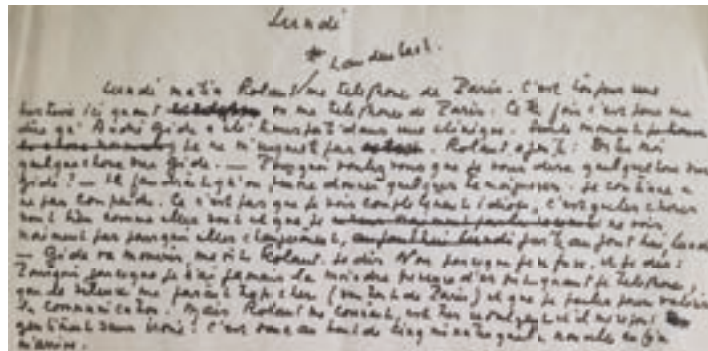 Lundi
* Laudenbach.
Lundi matin Roland me téléphone de Paris. C'est toujours une
histoire ici quand on me téléphone de Paris. Cette fois c'est pour me
dire qu'André Gide a été transporté dans une clinique.
je ne m'inquiète pas Roland ajoute : Dites moi
quelque chose sur Gide. — Pourquoi voulez vous que je vous dise quelque chose sur
Gide ? — Il faudrait qu'on puisse donner quelques témoignages. Je continue à
ne pas comprendre. Ce n'est pas que je sois complètement idiot, c'est que les choses
sont bien comme elles sont et que je ne vois
vraiment pas pourquoi elles changeraient, aujourd'hui lundi
— Gide va mourir, me dit Roland. Je dis Non parce que je refuse, et je dis :
Pourquoi parce que je n'ai jamais la moindre présence d'esprit quand je téléphone,
que le silence me paraît (surtout de Paris) et que je parle pour
la communication. Mais Roland me connaît, est très indulgent et il ne répond
C'est donc au bout de cinq minutes que la nouvelle enfin
m'arrive.